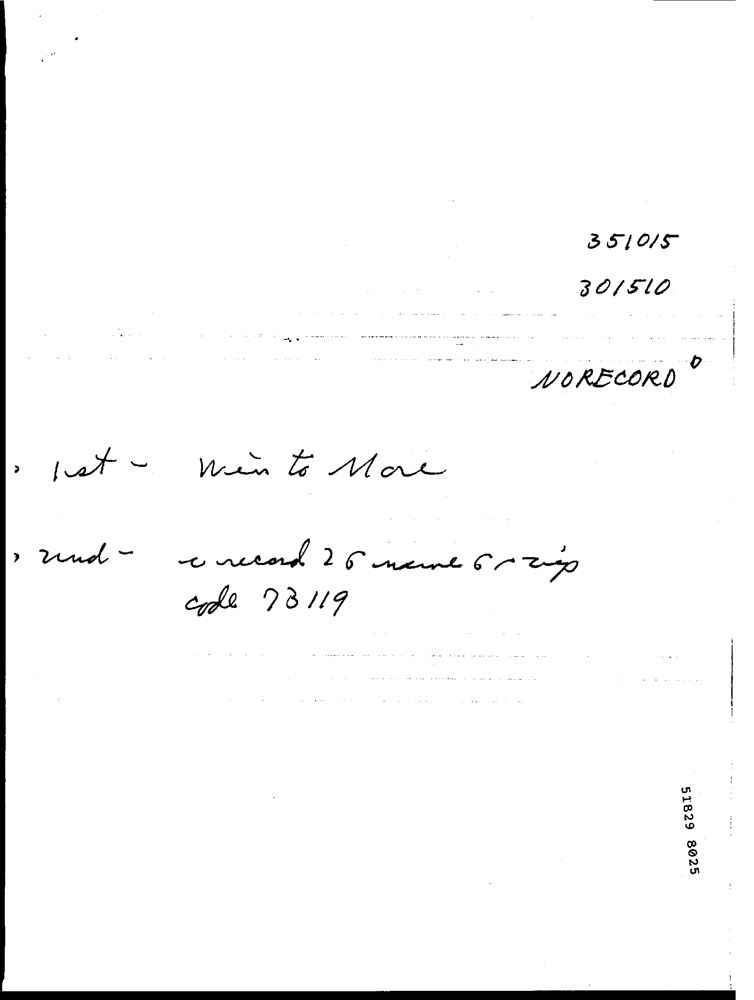 351015
301510
NORECORD
1st - Win to More
2nd - record 26 name 6 zip
code 73119
51829 8025